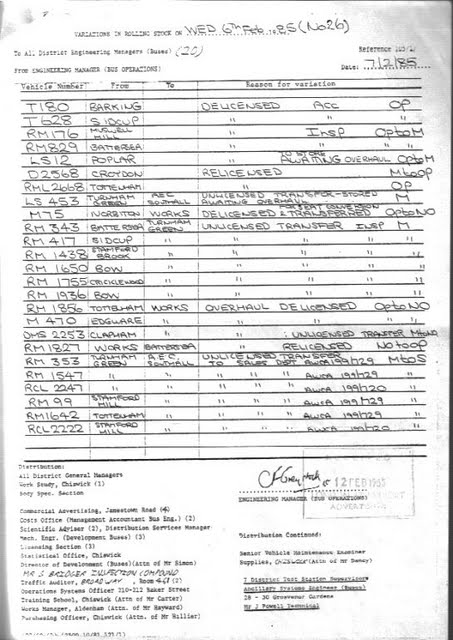 VARIATIONS IN ROLLING STOCK ON WED 6TH Feb 1985 (No26)
To All District Engineering Managers (Buses) (20)
Reference
FROM ENGINEERING MANAGER (BUS OPERATIONS) Date: 7/2/85
Vehicle Number From To Reason for variation
T180 BARKING DELICENSED ACC OP
T628 SIDCUP " " "
RM176 MUSWELL HILL " INSP OptoM
RM829 BATTERSEA " " "
LS12 POPLAR " TO STORE AWAITING OVERHAUL OptoM
D2568 CROYDON RELICENSED MtoOP
RML2668 TOTTENHAM " OP
LS453 TURNHAM GREEN AEC SOUTHALL UNLICENSED TRANSFER-STORED AWAITING OVERHAUL M
M75 NORBITON WORKS DELICENSED & TRANSFERRED FOR SEAT CONVERSION OptoNO
RM343 BATTERSEA TURNHAM GREEN UNLICENSED TRANSFER INSP M
RM417 SIDCUP " " " " "
RM1438 STAMFORD BROOK " " " " "
RM1650 BOW " " " " "
RM1755 CRICKLEWOOD " " " " "
RM1936 BOW " " " " "
RM1856 TOTTENHAM WORKS OVERHAUL DELICENSED OptoNO
M470 EDGWARE " " " "
DMS2253 CLAPHAM " " : UNLICENSED TRANSFER MtoNO
RM1827 WORKS BATTERSEA " RELICENSED NotoOP
RM353 TURNHAM GREEN A.E.C. SOUTHALL UNLICENSED TRANSFER TO SALES DEPT AWCA 199/129 MtoS
RM1547 " " " " " AWCA 199/129 "
RCL2247 " " " " " AWCA 199/120 "
RM99 STAMFORD HILL " " " " AWCA 199/129 "
RM1642 TOTTENHAM " " " " AWCA 199/129 "
RCL2222 STAMFORD HILL " " " " AWCA 199/120 "
RECEIVED
12 FEB 1985
ADVERTISING
ENGINEERING MANAGER (BUS OPERATIONS)
Distribution:
All District General Managers
Work Study, Chiswick (1)
Body Spec. Section
Commercial Advertising, Jamestown Road (4)
Costs Office (Management Accountant Bus Eng.) (2)
Scientific Adviser (2), Distribution Services Manager
Mech. Engr. (Development Buses) (3)
Licensing Section (3)
Statistical Office, Chiswick
Director of Development (Buses)(attn of Mr Simon)
INSPECTION COMPOUND
Traffic Auditor, BROADWAY, Room
Operations Systems Officer 210-212 Baker Street
Training School, Chiswick (Attn of Mr Carter)
Works Manager, Aldenham (Attn of Mr Hayward)
Purchasing Officer, Chiswick (Attn of Mr Hillier)
Distribution Continued:
Senior Vehicle Maintenance Examiner
Supplies, CHISWICK (Attn of Mr Dewey)
7 District Test Station Supervisors
Ancillary Systems Engineer (Buses)
28 - 30 Grosvenor Gardens
Mr J Powell Technical